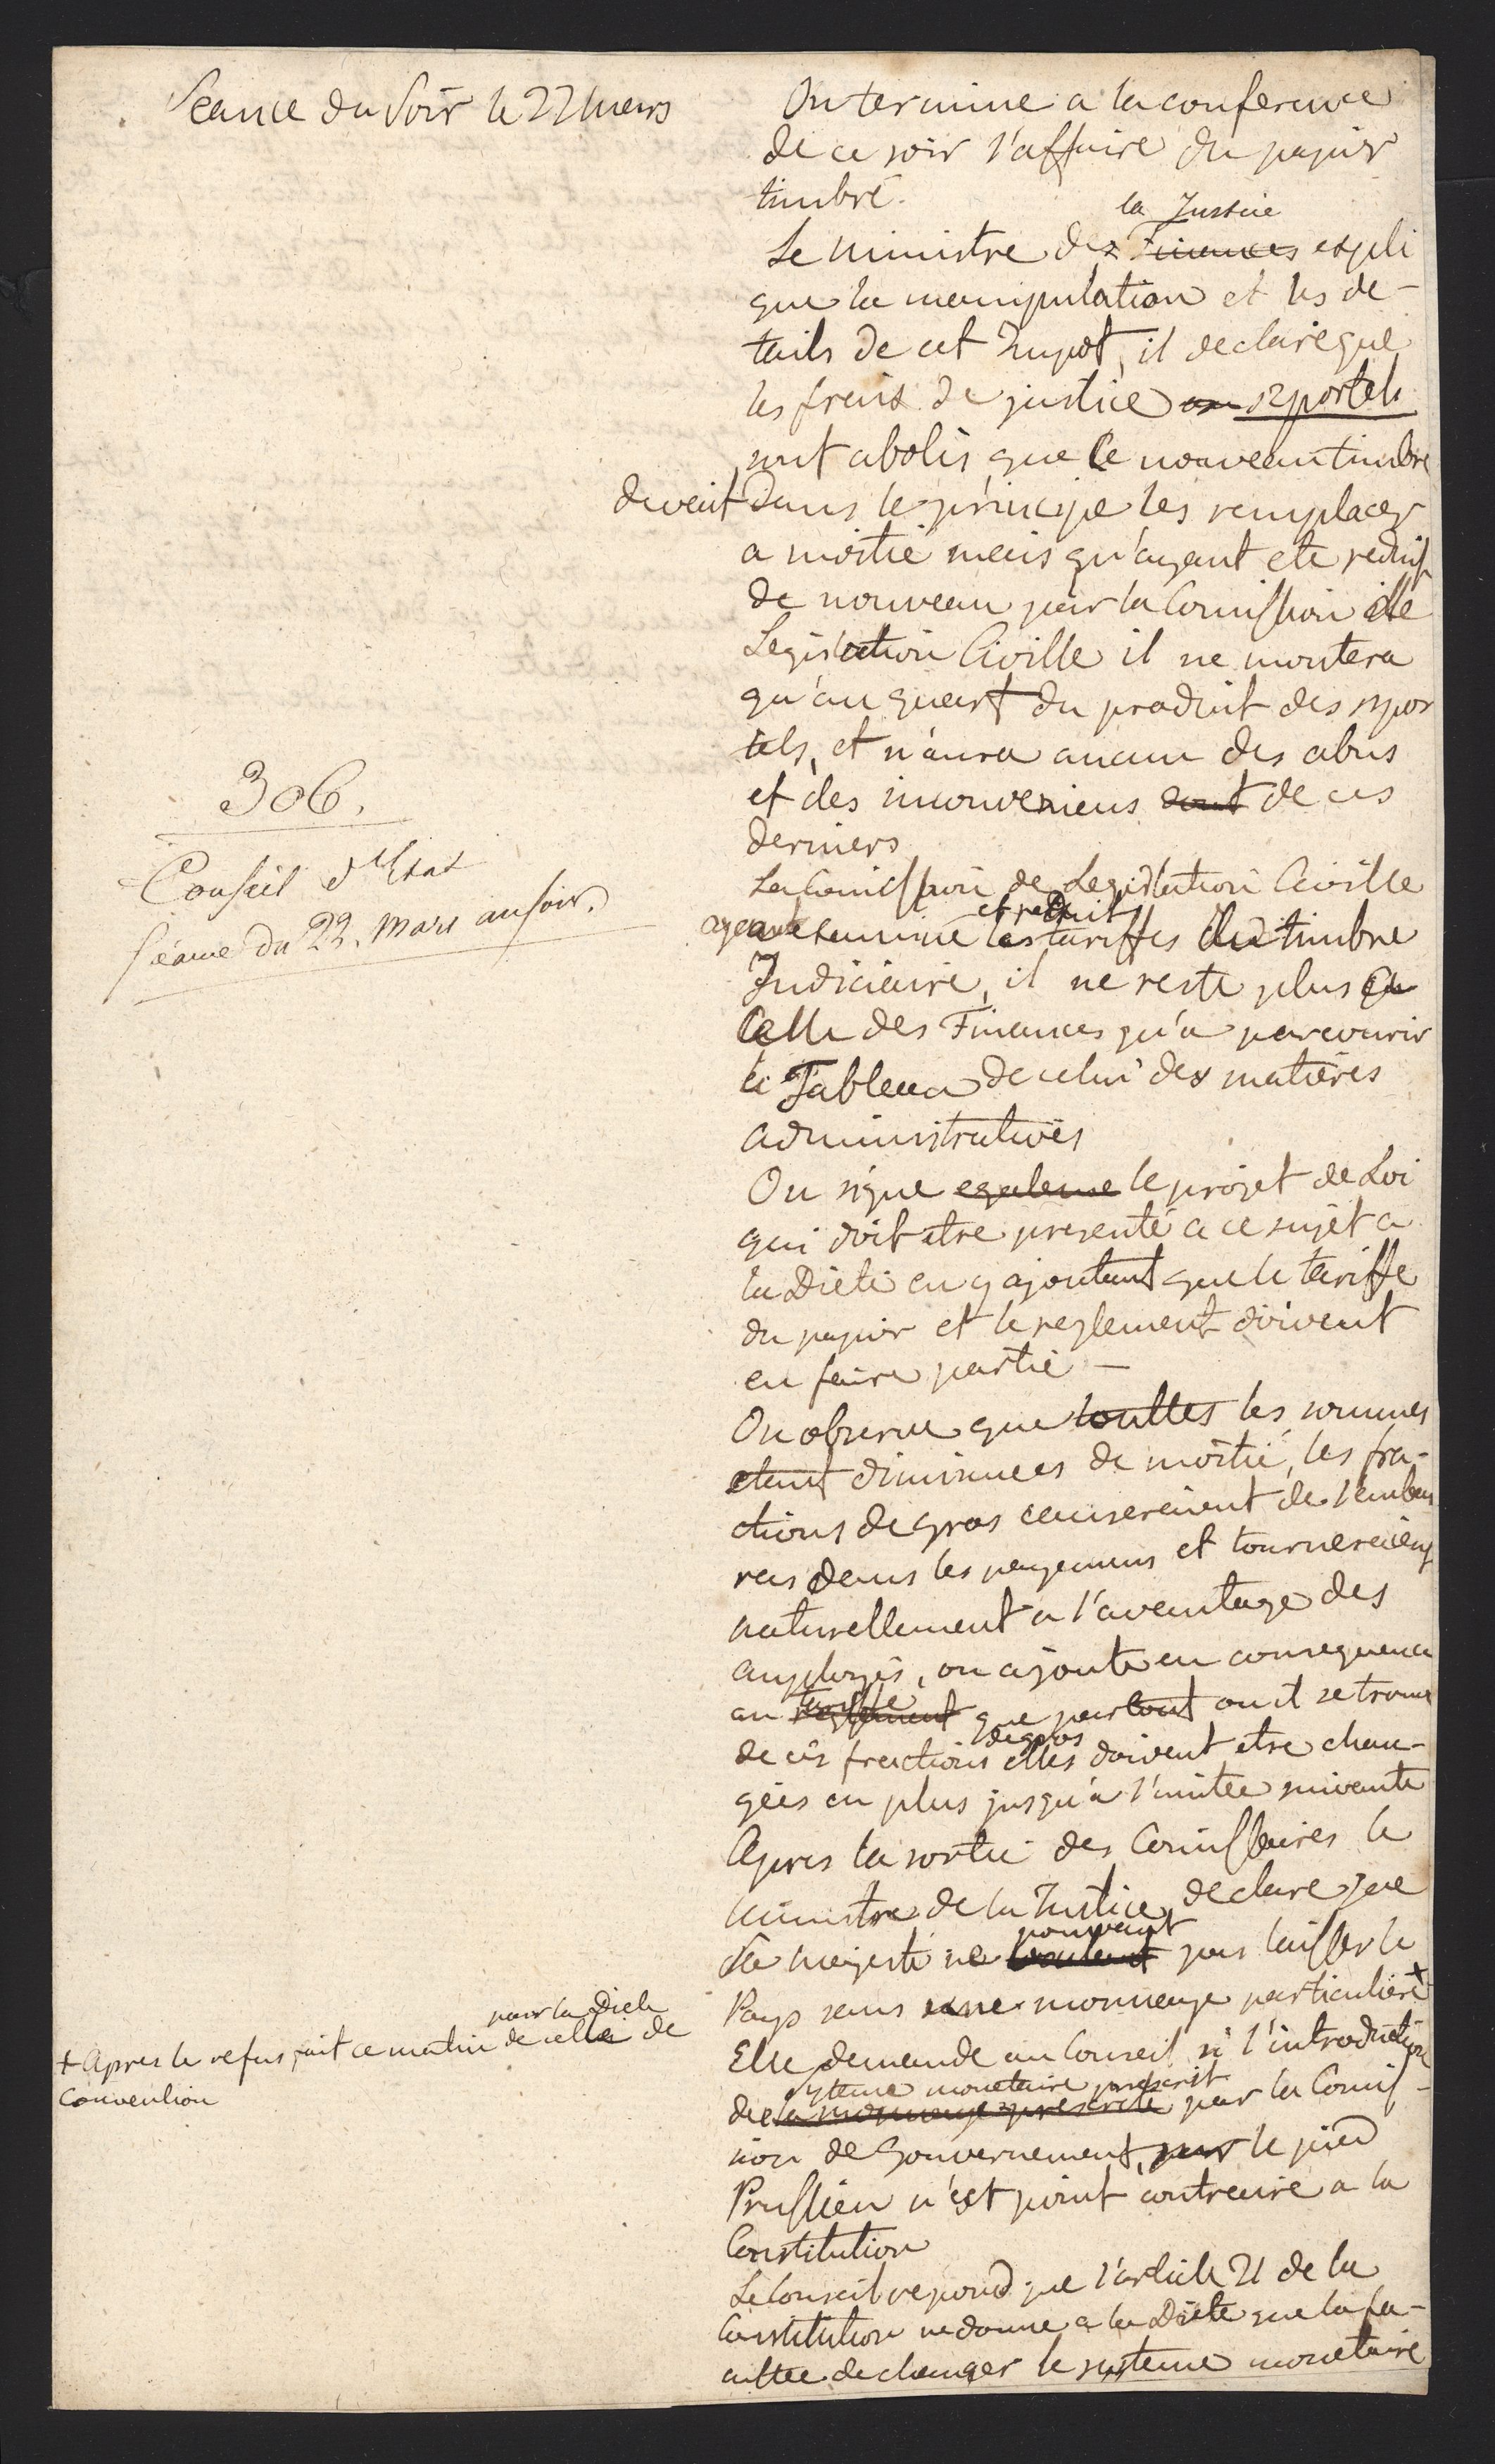 Seance du Soir le 22 mars
On termine a la conference
de ce soir l'affaire du papier
timbré.
la Justice
Le Ministre des Finances expli
que la manipulation et les de-
tails de cet Impot, il declare que
les frais de justice ou sportels
sont abolis, que le nouveau timbre
devait dans le principe les remplacer
a moitié mais qu'ayant ete reduit
de nouveau par la Comission de
Legislation Civille il ne montera
qu'au quart du produit des spor
tels, et n'aura aucun des abus
et des inconveniens dont de ces
derniers
306.
Conseil d'Etat
Séance du 22. Mars au soir.
La Comission de Legislation Civille
et reduit
ayant examiné les tariffes du timbre
Judiciaire, il ne reste plus a
Celle des Finances qu'a parcourir
le Tableau de celui des matieres
administratives
On signe egaleme le projet de Loi
qui doit etre presenté a ce sujet a
la Diete en y ajoutant que le tariffe
du papier et le reglement doivent
en faire partie —
On observe que toutes les sommes
etant diminuees de moitié, les fra-
ctions de gros causeroient de l'embar
ras dans les payemens et tourneroient
naturellement a l'avantage des
employés, on ajoute en consequence
tariffe
au reglement que partout ou il se trouve
de gros
de ces fractions elles doivent etre chan-
gées en plus jusqu'a l'unitee suivante
Apres la sortie des Comissaires le
Ministre de la Justice declare que
pouvant
Sa Majesté ne voulant pas laisser le
Pays sans une monnaye particuliere +
+ Apres le refus fait ce matin par la Diete de celle de
Convention
Elle demande au Conseil si l'introduction
systeme monetaire prescrit
de la monnaye prescrite par la Comis-
sion de Gouvernement, sur le pied
Prussien n'est point contraire a la
Constitution
Le Conseil repond que l'article 21 de la
Constitution ne donne a la Diete que la fa-
cultee de changer le systeme monetaire